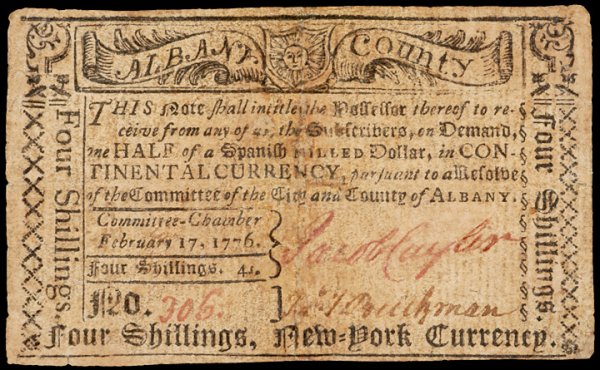 ALBANY County
THIS Note shall intitle the Possessor thereof to re-
ceive from any of us, the Subscribers, on Demand,
one HALF of a Spanish MILLED Dollar, in CON-
TINENTAL CURRENCY, pursuant to a Resolve
of the Committee of the City and County of ALBANY.
Committee-Chamber
February 17, 1776.
Four Shillings. 4s.
No. 306.
Jacob Cuyler
Beeckman
Four Shillings, New-York Currency.
Four Shillings
Four Shillings.